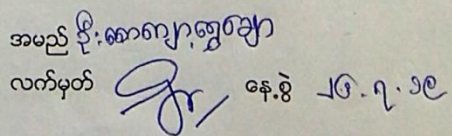 အမည် ဦးစောကျာ့ရွှေချော
လက်မှတ် နေ့စွဲ ၂၆.၇.၁၉